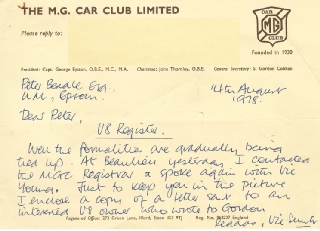 THE M.G. CAR CLUB LIMITED
Please reply to:
CAR
MG
CLUB
Founded in 1930
President: Capt. George Eyston, O.B.E., M.C., M.A. Chairman: John Thornley, O.B.E. General Secretary: S. Gordon
Peter Esq.
14th August
1978.
Dear Peter,
V8 Register.
Well the formalities are gradually being
tied up. At Beaulieu yesterday I contacted
the MGC Registrar & spoke again with Vic
Young. Just to keep you in the picture
I enclose a copy of a letter sent to an
interested V8 owner who wrote to Gordon
Registered Office: 273 Green Lane, Ilford, Essex England
Vic